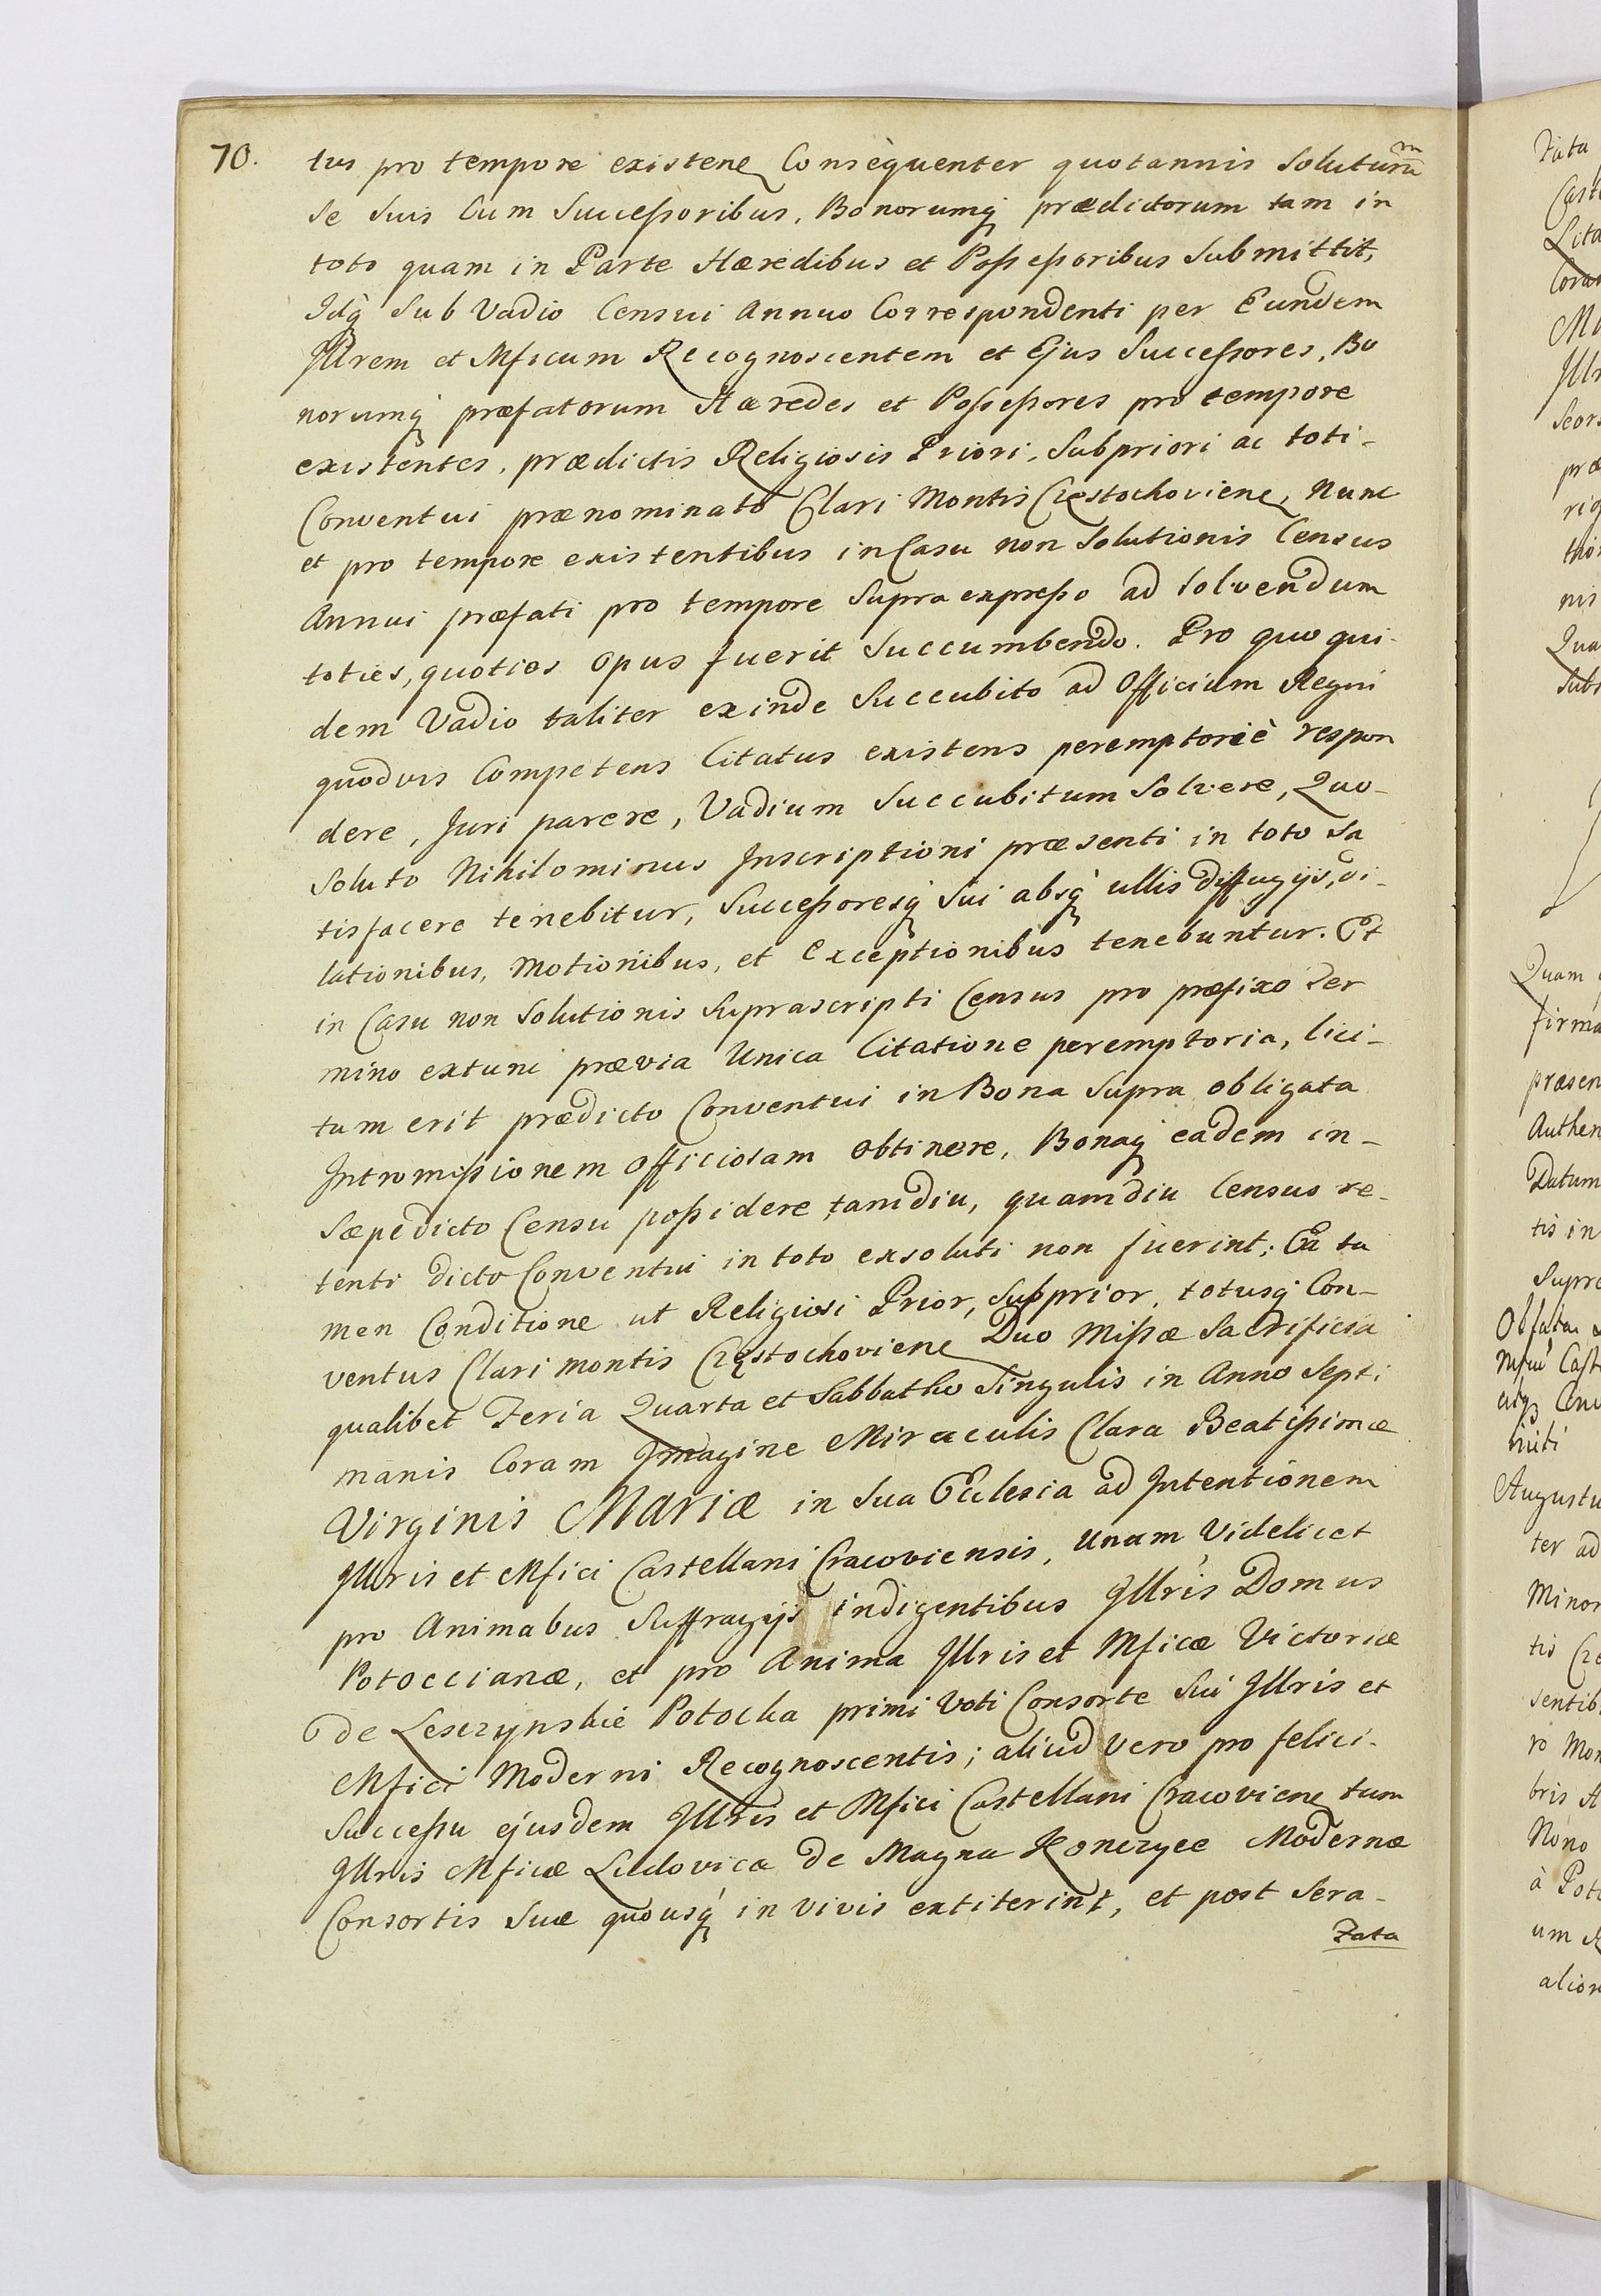 70.
tus pro tempore existenₑ Consequenter quotannis Soluturūm
se suis Cum Successoribus, Bonorumq; prædictorum tam in
toto quam in Parte Hæredibus et Possessoribus Submittit,
Idq; Sub Vadio Censui Annuo Correspondenti per Eundem
Jllrem et Mficum Recognoscentem et Ejus Successores, Bo
norumq; præfatorum Hæredes et Possessores pro tempore
existentes, prædictis Religiosis Priori, Subpriori ac toti-
Conventui prænominato Clari Montis Częstochovienₑ, Nunc
et pro tempore existentibus in Casu non Solutionis Census
Annui præfati pro tempore Supra expresso ad Solvendum
toties, quoties opus fuerit Succumbendo. Pro quo qui-
dem Vadio taliter exinde Succubito ad Officium Regni
quodvis Competens Citatus existens peremptoriè respon
dere, Juri parere, Vadium Succubitum Solvere, Quo-
Soluto Nihilominus Jnscriptioni præsenti in toto Sa
tisfacere tenebitur, Successoresq; Sui absq; ullis diffugijs, di-
lationibus, Motionibus, et Exceptionibus tenebuntur. Et
in Casu non Solutionis Suprascripti Census pro præfixo Ter
mino extunc prævia Unica Citatione peremptoria, lici-
tum erit prædicto Conventui in Bona Supra obligata
Jntromissionem officiosam obtinere, Bonaq; eadem in-
Sæpedicto Censu possidere tamdiu, quamdiu Census re-
tenti dicto Conventui in toto exsoluti non fuerint; Ea ta
men Conditione ut Religiosi Prior, Subprior, totusq; Con-
ventus Clari montis Częstochovienₑ Duo Missæ Sacrificia
qualibet Feria Quarta et Sabbatho Singulis in Anno Septi
manis Coram Jmagine Miraculis Clara Beatissimæ
Virginis Mariæ in Sua Ecclesia ad Jntentionem
Jllris et Mfici Castellani Cracoviensis, Unam Videlicet
pro Animabus Suffragijs indigentibus Jllris Domus
Potoccianæ, et pro Anima Jllris et Mficæ Victoriæ
de Leszczynskie Potocka primi Voti Consorte Sui Jllris et
Mfici Moderni Recognoscentis; aliud Vero pro felici-
Successu ejusdem Jllris et Mfici Castellani Cracovienₑ tum
Jllris Mficæ Ludovica de Magna Konczyce Modernæ
Consortis Suæ quousq; in vivis extiterint, et post Sera-
Fata
Fata
Cast
Lita
Coram
Jllr
Seor
præ
rig
nis
Qua
Subs
Quam
firma
præsen
Authen
Datum
tis in
Supra
Oblata
niti
Augustu
ter ad
Minor
tis Cze
sentib
ro Mon
bris
Nono
à Poto
um
alior